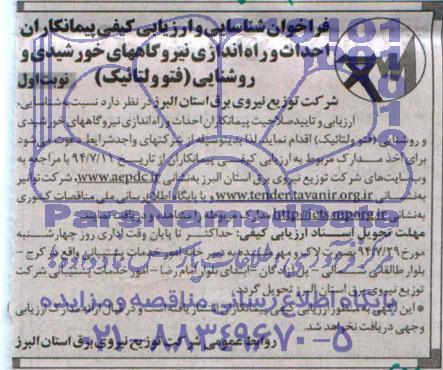 فراخوان شناسایی و ارزیابی کیفی پیمانکاران
احداث و راه اندازی نیروگاههای خورشیدی و
روشنایی (فتو ولتائیک)
نوبت اول
شرکت توزیع نیروی برق استان البرز در نظر دارد نسبت به شناسایی،
ارزیابی و تایید صلاحیت پیمانکاران احداث و راه اندازی نیروگاههای خورشیدی
و روشنایی (فتو ولتائیک) اقدام نماید. لذا بدینوسیله از شرکتهای واجد شرایط دعوت می شود
برای اخذ مدارک مربوط به ارزیابی کیفی پیمانکاران از تاریخ ۹۴/۷/۲۱ با مراجعه به
وبسایت های شرکت توزیع نیروی برق استان البرز به نشانی www.aepdc.ir، شرکت توانیر
به نشانی www.tender.tavanir.org.ir و یا پایگاه اطلاع رسانی ملی مناقصات کشوری
به نشانی http://iets.mporg.ir مدارک مربوطه را مشاهده و دریافت نمایند.
مهلت تحویل اسناد ارزیابی کیفی: حداکثر تا پایان وقت اداری روز چهارشنبه
مورخ ۹۴/۷/۲۹ بصورت لاک و مهر شده به امور خدمات پشتیبانی واقع در کرج -
بلوار طالقانی شمالی - ابتدای بلوار امام رضا - امور خدمات پشتیبانی شرکت
توزیع نیروی برق استان البرز تحویل گردد.
این آگهی به منظور ارزیابی کیفی پیمانکاران انتشار یافته است و در قبال ارائه مدارک ارزیابی
وجهی دریافت نخواهد شد.
روابط عمومی شرکت توزیع نیروی برق استان البرز
ParsNamadData
پایگاه اطلاع رسانی مناقصه و مزایده
۰۲۱-۸۸۳۴۹۶۷۰-۵